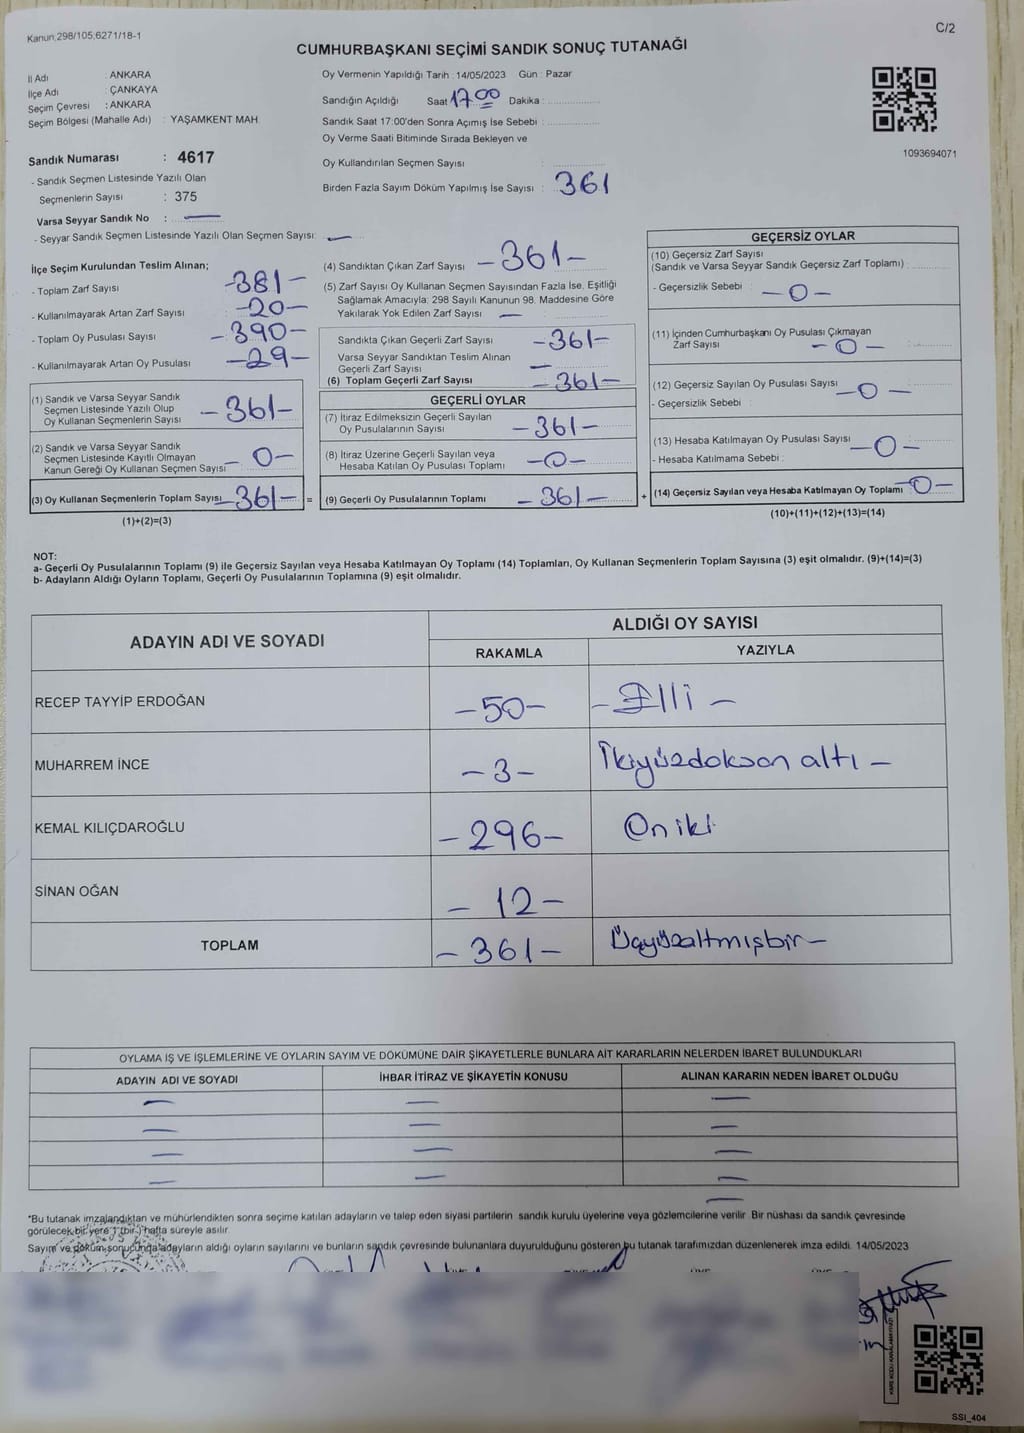 Kanun,298/105,6271/18-1
C/2
CUMHURBAŞKANI SEÇİMİ SANDIK SONUÇ TUTANAĞI
İl Adı : ANKARA
İlçe Adı : ÇANKAYA
Seçim Çevresi : ANKARA
Seçim Bölgesi (Mahalle Adı) : YAŞAMKENT MAH.
Sandık Numarası : 4617
- Sandık Seçmen Listesinde Yazılı Olan
Seçmenlerin Sayısı : 375
Varsa Seyyar Sandık No : —
- Seyyar Sandık Seçmen Listesinde Yazılı Olan Seçmen Sayısı: —
Oy Vermenin Yapıldığı Tarih : 14/05/2023 Gün : Pazar
Sandığın Açıldığı Saat 17.00 Dakika :
Sandık Saat 17:00'den Sonra Açımış İse Sebebi :
Oy Verme Saati Bitiminde Sırada Bekleyen ve
Oy Kullandırılan Seçmen Sayısı :
Birden Fazla Sayım Döküm Yapılmış İse Sayısı : 361
1093694071
İlçe Seçim Kurulundan Teslim Alınan;
- Toplam Zarf Sayısı : -381-
- Kullanılmayarak Artan Zarf Sayısı : -20-
- Toplam Oy Pusulası Sayısı : -390-
- Kullanılmayarak Artan Oy Pusulası : -29-
(1) Sandık ve Varsa Seyyar Sandık
Seçmen Listesinde Yazılı Olup
Oy Kullanan Seçmenlerin Sayısı -361-
(2) Sandık ve Varsa Seyyar Sandık
Seçmen Listesinde Kayıtlı Olmayan
Kanun Gereği Oy Kullanan Seçmen Sayısı -0-
(3) Oy Kullanan Seçmenlerin Toplam Sayısı -361- =
(1)+(2)=(3)
(4) Sandıktan Çıkan Zarf Sayısı -361-
(5) Zarf Sayısı Oy Kullanan Seçmen Sayısından Fazla İse, Eşitliği
Sağlamak Amacıyla; 298 Sayılı Kanunun 98. Maddesine Göre
Yakılarak Yok Edilen Zarf Sayısı : —
Sandıkta Çıkan Geçerli Zarf Sayısı -361-
Varsa Seyyar Sandıktan Teslim Alınan
Geçerli Zarf Sayısı —
(6) Toplam Geçerli Zarf Sayısı -361-
GEÇERLİ OYLAR
(7) İtiraz Edilmeksizin Geçerli Sayılan
Oy Pusulalarının Sayısı -361-
(8) İtiraz Üzerine Geçerli Sayılan veya
Hesaba Katılan Oy Pusulası Toplamı -0-
(9) Geçerli Oy Pusulalarının Toplamı -361- +
GEÇERSİZ OYLAR
(10) Geçersiz Zarf Sayısı
(Sandık ve Varsa Seyyar Sandık Geçersiz Zarf Toplamı) :
- Geçersizlik Sebebi : -0-
(11) İçinden Cumhurbaşkanı Oy Pusulası Çıkmayan
Zarf Sayısı -0-
(12) Geçersiz Sayılan Oy Pusulası Sayısı -0-
- Geçersizlik Sebebi :
(13) Hesaba Katılmayan Oy Pusulası Sayısı -0-
- Hesaba Katılmama Sebebi :
(14) Geçersiz Sayılan veya Hesaba Katılmayan Oy Toplamı -0-
(10)+(11)+(12)+(13)=(14)
NOT:
a- Geçerli Oy Pusulalarının Toplamı (9) ile Geçersiz Sayılan veya Hesaba Katılmayan Oy Toplamı (14) Toplamları, Oy Kullanan Seçmenlerin Toplam Sayısına (3) eşit olmalıdır. (9)+(14)=(3)
b- Adayların Aldığı Oyların Toplamı, Geçerli Oy Pusulalarının Toplamına (9) eşit olmalıdır.
ADAYIN ADI VE SOYADI ALDIĞI OY SAYISI
RAKAMLA YAZIYLA
RECEP TAYYİP ERDOĞAN -50- -Elli-
MUHARREM İNCE -3- İkiyüzdoksan altı -
KEMAL KILIÇDAROĞLU -296- Oniki
SİNAN OĞAN -12-
TOPLAM -361- Üçyüzaltmışbir-
OYLAMA İŞ VE İŞLEMLERİNE VE OYLARIN SAYIM VE DÖKÜMÜNE DAİR ŞİKAYETLERLE BUNLARA AİT KARARLARIN NELERDEN İBARET BULUNDUKLARI
ADAYIN ADI VE SOYADI İHBAR İTİRAZ VE ŞİKAYETİN KONUSU ALINAN KARARIN NEDEN İBARET OLDUĞU
*Bu tutanak imzalandıktan ve mühürlendikten sonra seçime katılan adayların ve talep eden siyasi partilerin sandık kurulu üyelerine veya gözlemcilerine verilir. Bir nüshası da sandık çevresinde
görülecek bir yere 1 (bir) hafta süreyle asılır.
Sayım ve döküm sonuçunda adayların aldığı oyların sayılarını ve bunların sandık çevresinde bulunanlara duyurulduğunu gösteren bu tutanak tarafımızdan düzenlenerek imza edildi. 14/05/2023
SSI_404